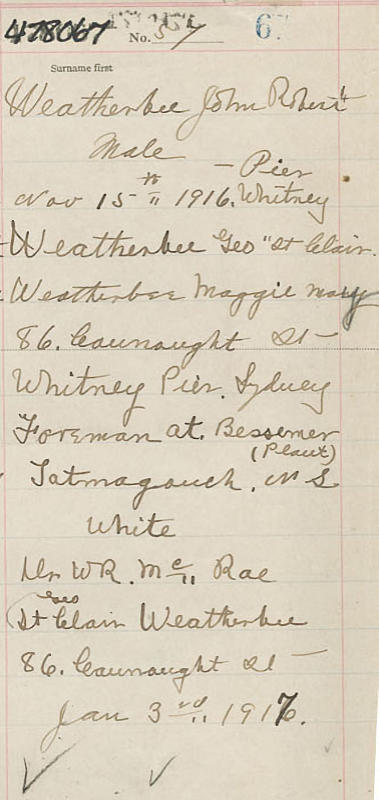 478067 No. 557 67
Surname first
Weatherbee John Robert
Male
Nov 15th 1916. — Pier Whitney
Weatherbee Geo "St Clair.
Weatherbee Maggie May
86. Caunaught St —
Whitney Pier. Sydney
Foreman at. Bessemer
(Plant)
Tatmagouch. N S
White
Dr WR. Mc Rae
Geo
St Clair Weatherbee
86. Caunaught St —
Jan 3rd 1917.